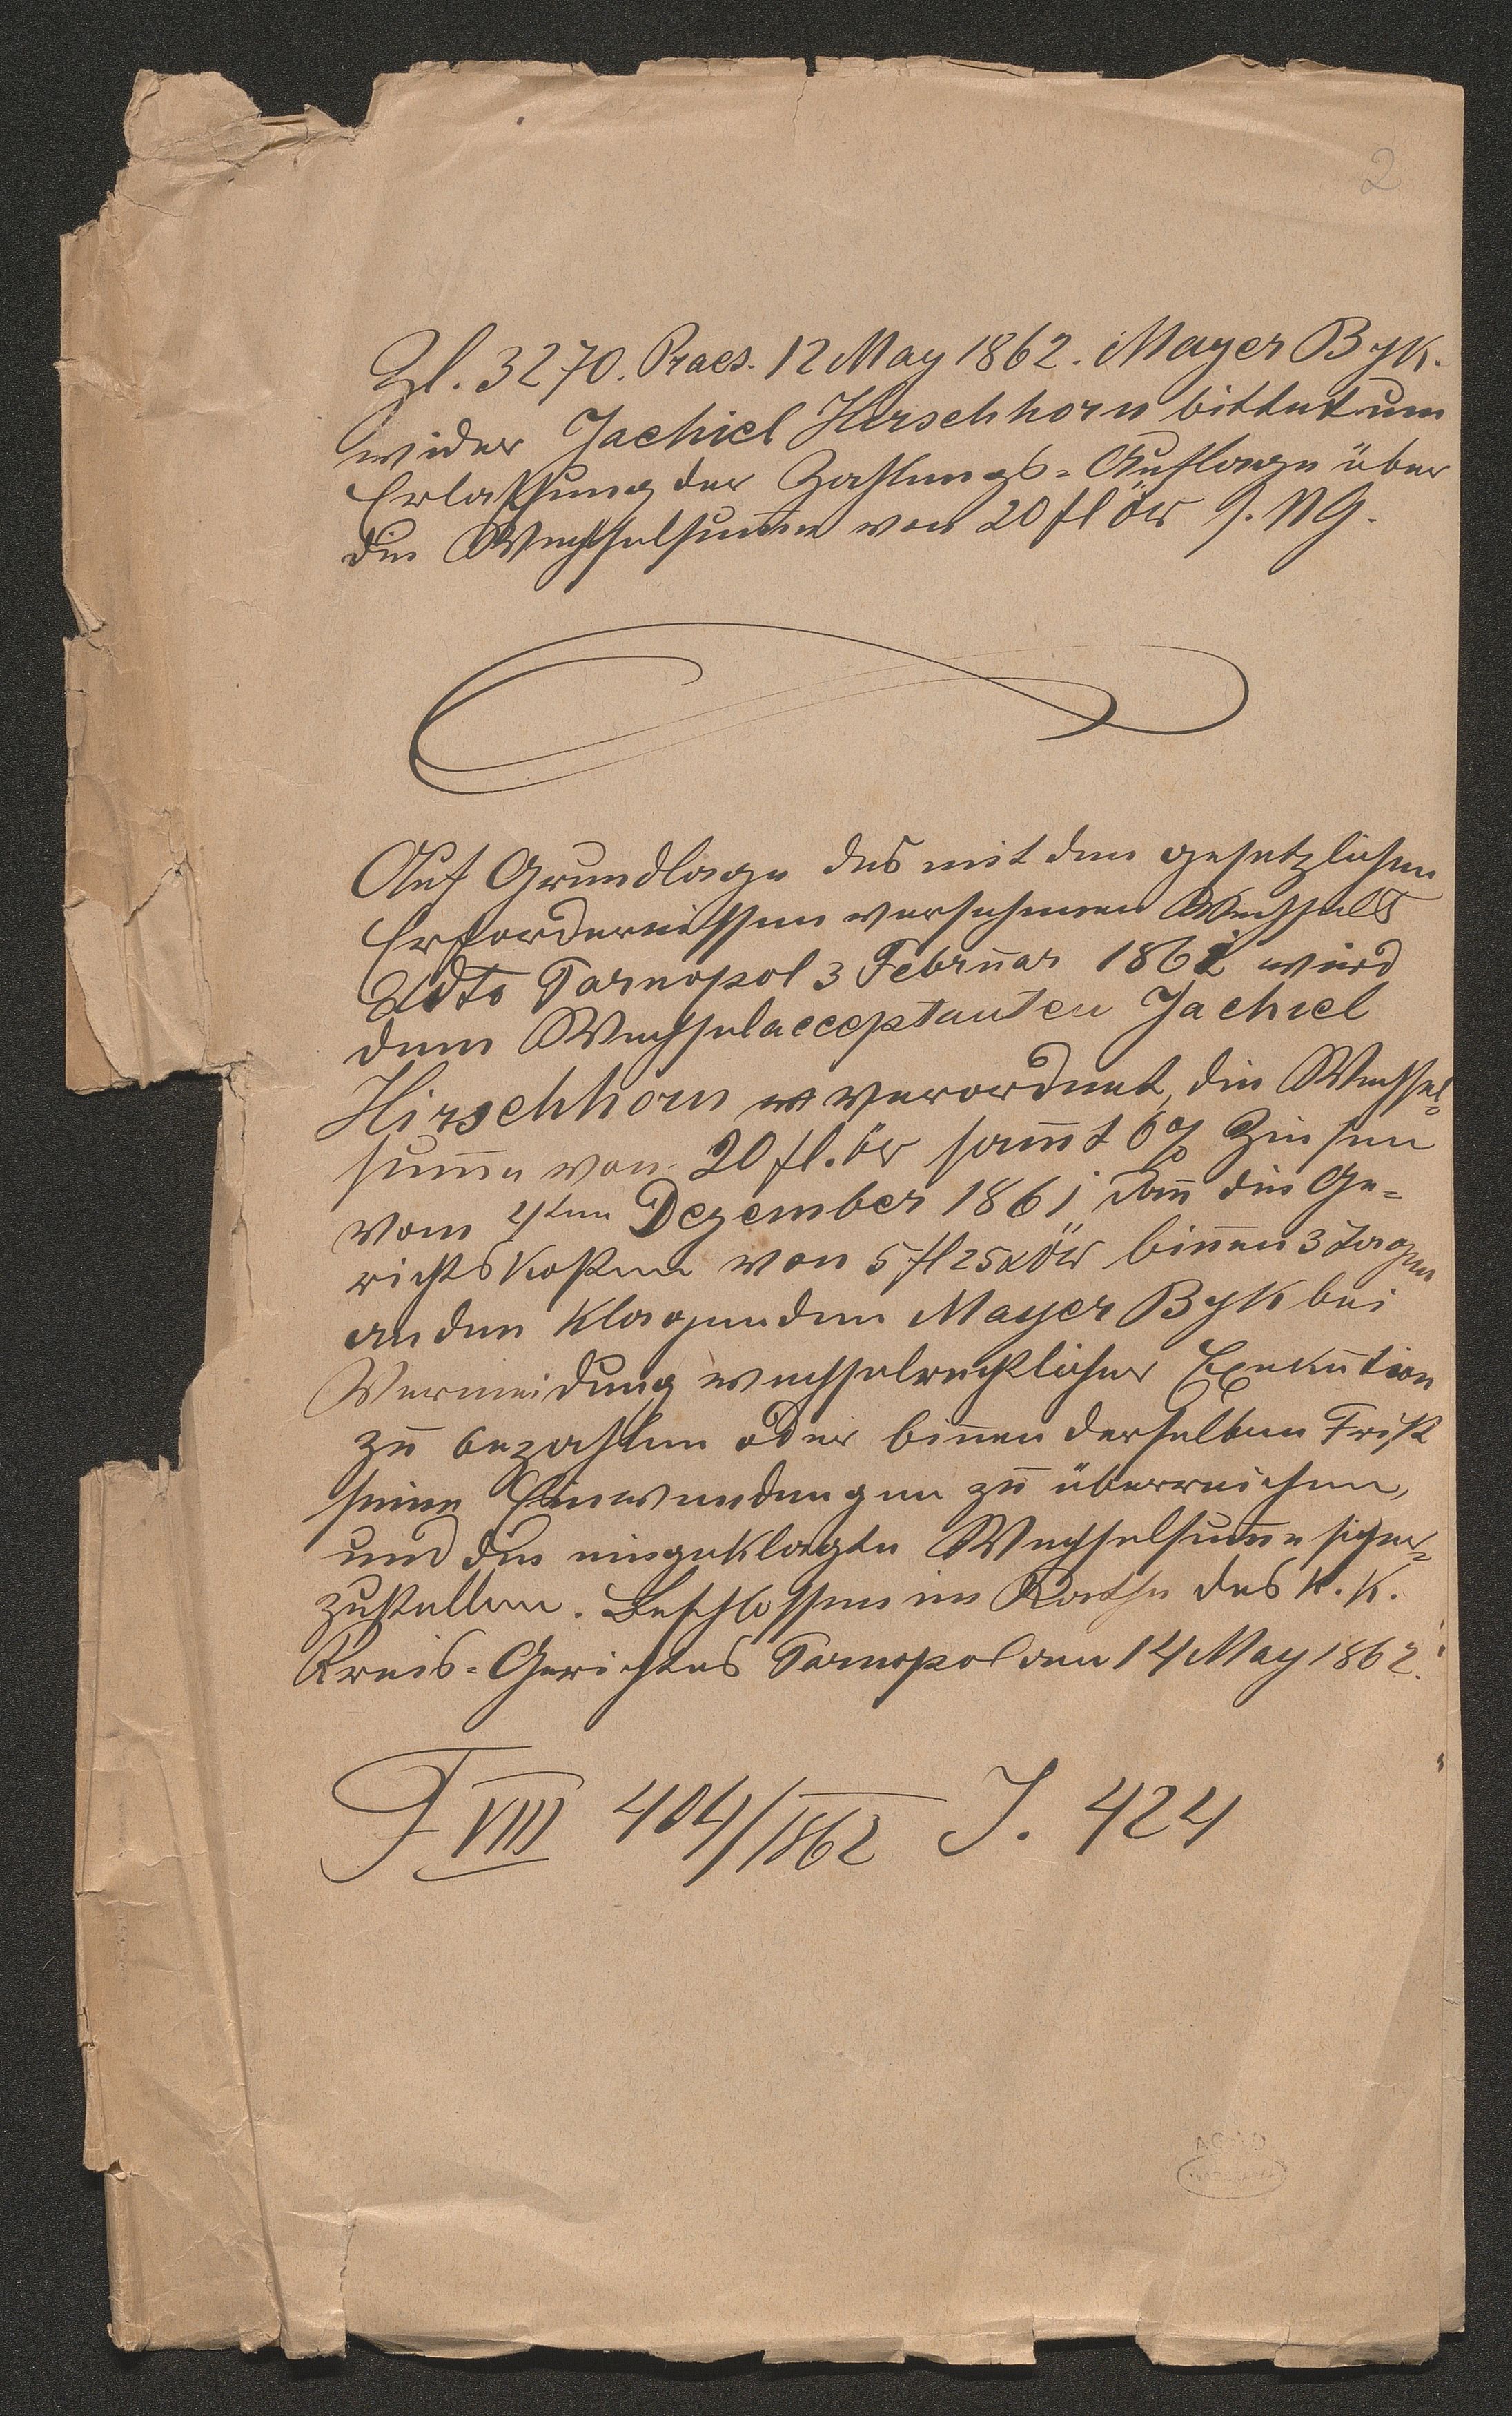 2
Zl. 3270. Praes. 12 May 1862. Mayer Byk.
wider Jachiel Hirschhorn bittet um
Erlassung der Zahlungs=Auflage über
die Wechselsum̅e von 20 fl öw s. NG.
Auf Grundlage des mit den gesetzlichen
Erfordernissen versehenen Wechsels
ddto Tarnopol 3 Februar 1861 wird
dem Wechselacceptanten Jachiel
Hirschhorn verordnet, die Wechsel=
sum̅e von 20 fl. öw sam̅t 6% Zinsen
vom 4ten Dezember 1861 dan̅ die Ge=
richtskosten von 5 fl 25x öW bin̅en 3 Tagen
an den Klagenden Mayer Byk bei
Vermeidung wechselrechtlicher Exekution
zu bezahlen oder bin̅en derselben Frist
seine Einwendungen zu überreichen,
und die eingeklagte Wechselsum̅e sicher=
zustellen. Beschlossen im Rathe des k. k.
Kreis=Gerichtes Tarnopol am 14 May 1862.
F VIII 404/1862 J. 424